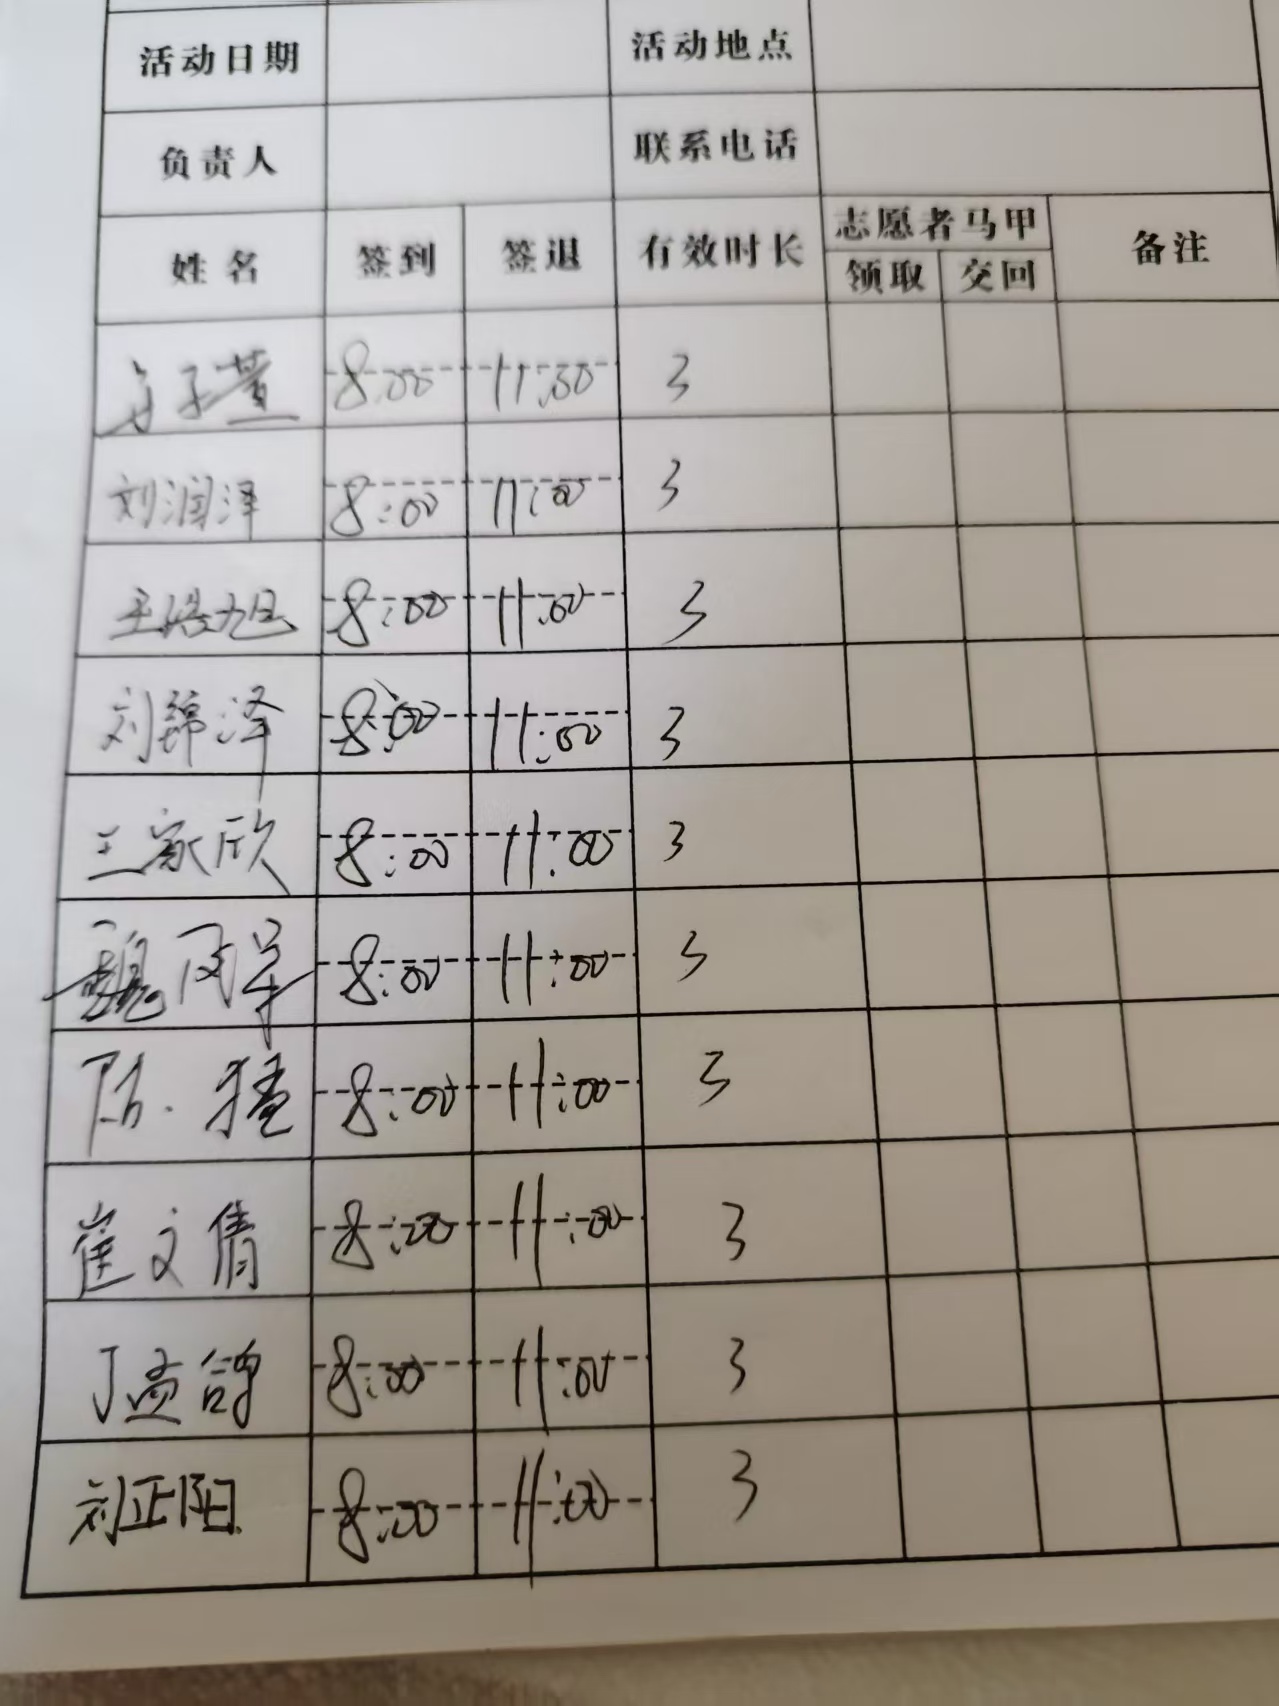 活动日期 活动地点
负责人 联系电话
姓名 签到 签退 有效时长 志愿者马甲 备注
领取 交回
8:00 11:00 3
刘润泽 8:00 11:00 3
王浩旭 8:00 11:00 3
刘锦泽 8:00 11:00 3
王家欣 8:00 11:00 3
魏 8:00 11:00 3
陈 8:00 11:00 3
崔文倩 8:00 11:00 3
丁孟鸽 8:00 11:00 3
刘正阳 8:00 11:00 3